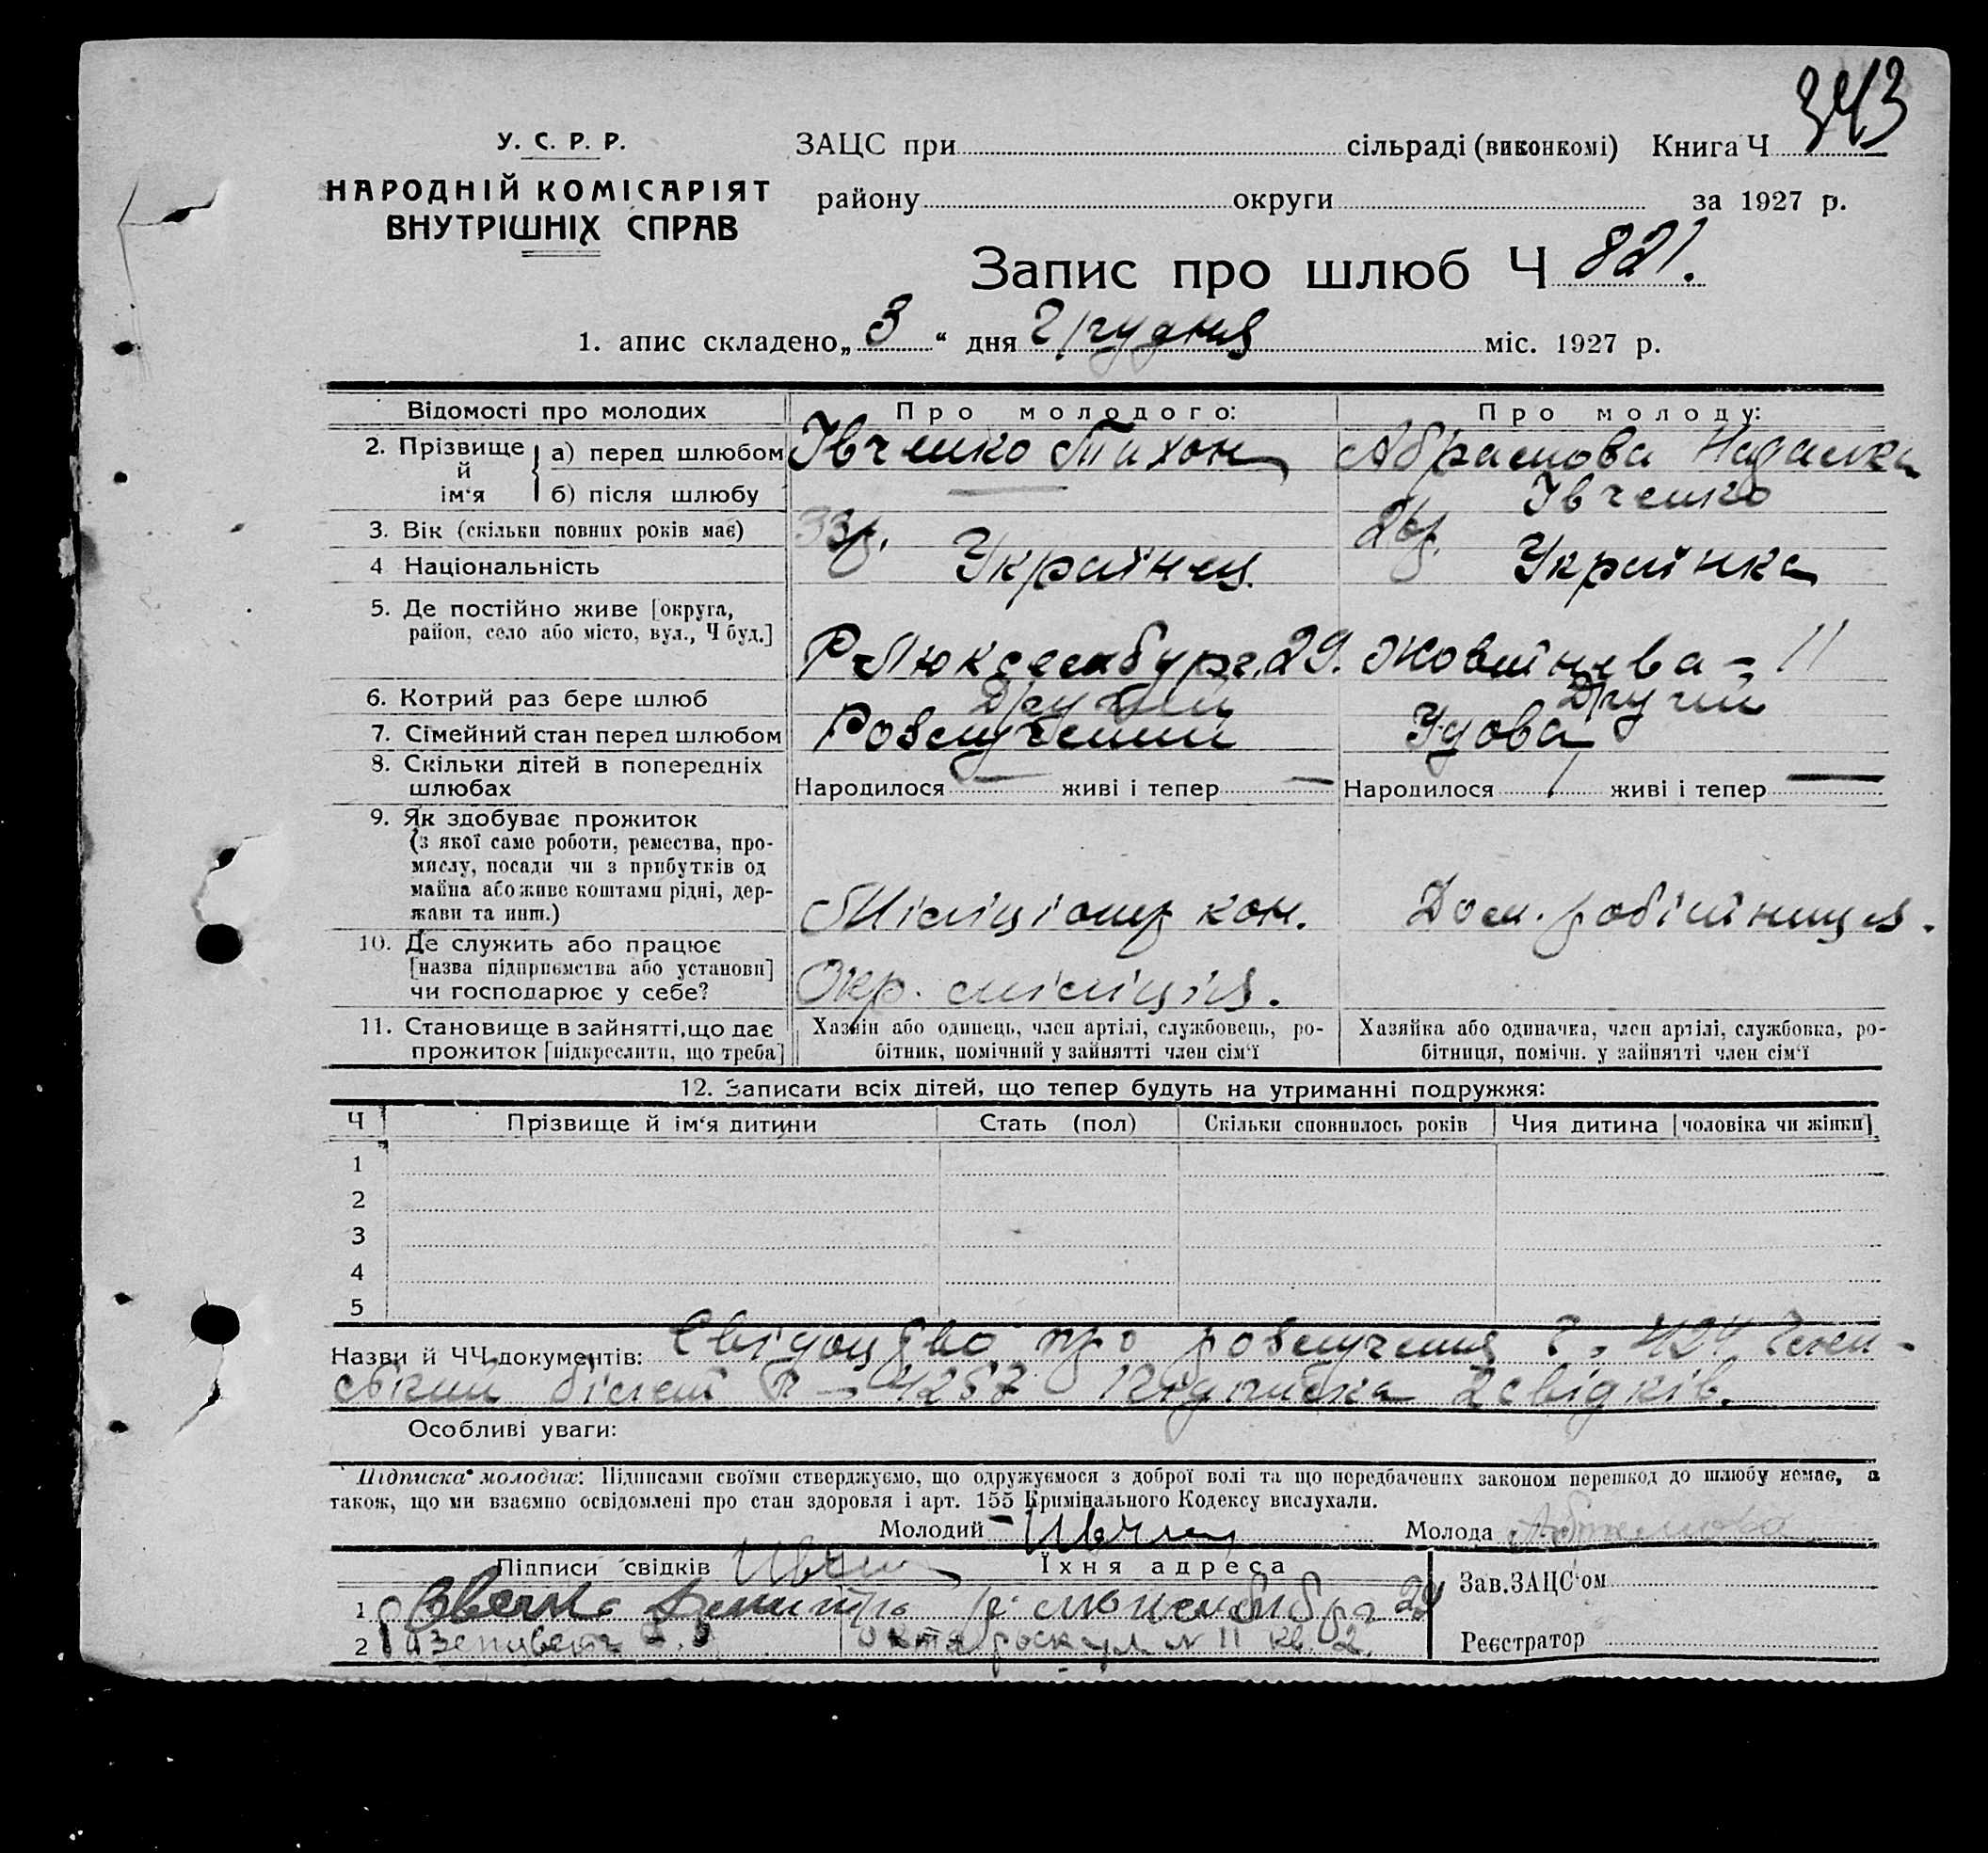 343
У. С. Р. Р.
НАРОДНІЙ КОМІСАРІЯТ
ВНУТРІШНІХ СПРАВ
ЗАЦС при сільраді (виконкомі) Книга Ч
району округи за 1927 р.
Запис про шлюб Ч 821.
1. апис складено „ 3 “ дня Грудня міс. 1927 р.
Відомості про молодих Про молодого: Про молоду:
2. Прізвище й ім‘я а) перед шлюбом Івченко Тихон Абрамова Надалка
б) після шлюбу — Івченко
3. Вік (скільки повних років має) 33р. 26р.
4 Національність Українец. Українка
5. Де постійно живе [округа,
район, село або місто, вул., Ч буд.] Р. Люксембург. 29. Жовтнева – 11
6. Котрий раз бере шлюб Другий Другий
7. Сімейний стан перед шлюбом Розлучений Удова
8. Скільки дітей в попередніх
шлюбах Народилося — живі і тепер — Народилося 1 живі і тепер —
9. Як здобуває прожиток
(з якої саме роботи, ремества, про-
мислу, посади чи з прибутків од
майна або живе коштами рідні, дер-
жави та инш.) Міліціонер кон. Дом. робітниця.
10. Де служить або працює
[назва підприємства або установи]
чи господарює у себе? Окр. міліція.
11. Становище в зайнятті, що дає
прожиток [підкреслити, що треба]
Хазяїн або одинець, член артілі, службовець, ро-
бітник, помічний у зайнятті член сім‘ї
Хазяйка або одиначка, член артілі, службовка, ро-
бітниця, помічн. у зайнятті член сім‘ї
12. Записати всіх дітей, що тепер будуть на утриманні подружжя:
Ч Прізвище й ім‘я дитини Стать (пол) Скільки сповнилось років Чия дитина [чоловіка чи жінки]
1
2
3
4
5
Назви й ЧЧ документів: Свідоцтво про розлучення Ч. 424
білет 4257 Підписка 2 свідків.
Особливі уваги:
Підписка молодих: Підписами своїми стверджуємо, що одружуємося з доброї волі та що передбачених законом перешкод до шлюбу немає, а
також, що ми взаємно освідомлені про стан здоровля і арт. 155 Кримінального Кодексу вислухали.
Молодий Молода Абрамова
Підписи свідків Їхня адреса
Зав. ЗАЦС‘ом
1
2 Октябрьск ул N 11 кв. 2.
Реєстратор